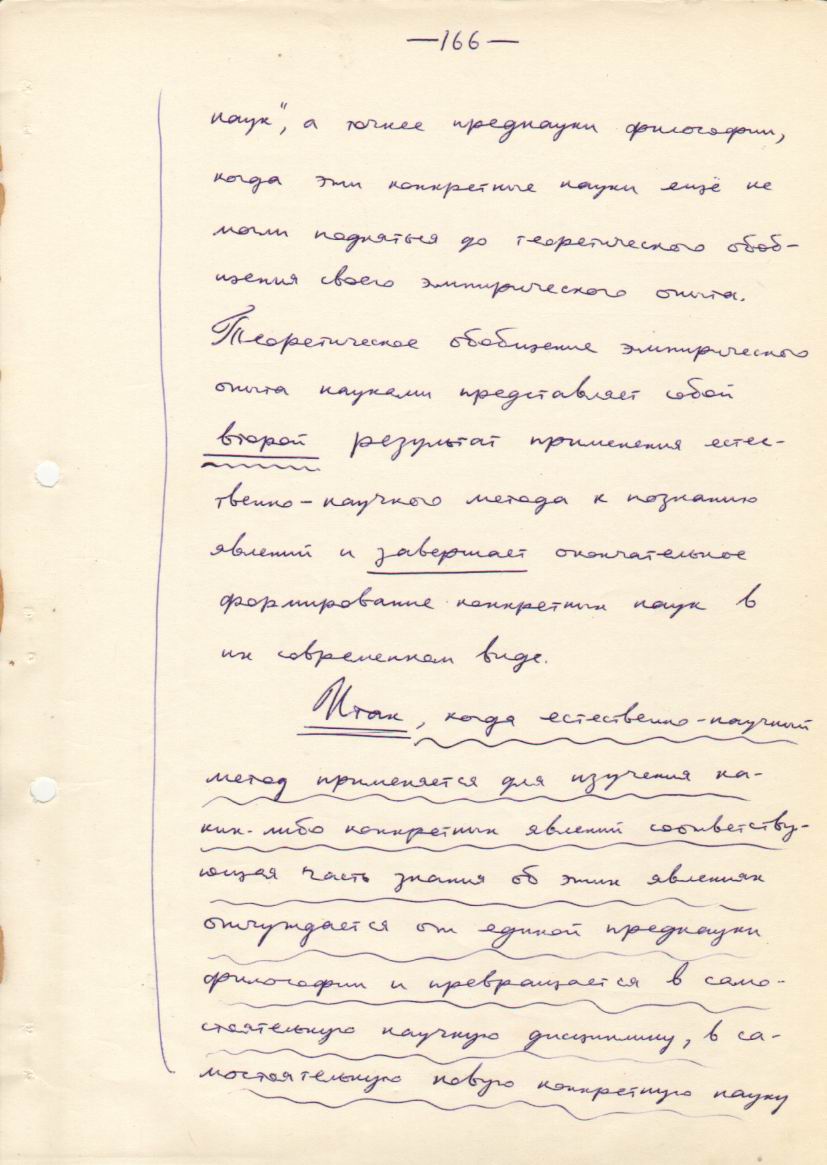 —166—
наук", а точнее преднауки философии,
когда эти конкретные науки ещё не
могли подняться до теоретического обоб-
щения своего эмпирического опыта.
Теоретическое обобщение эмпирического
опыта науками представляет собой
второй результат применения естес-
твенно-научного метода к познанию
явлений и завершает окончательное
формирование конкретных наук в
их современном виде.
Итак, когда естественно-научный
метод применяется для изучения ка-
ких-либо конкретных явлений соответству-
ющая часть знания об этих явлениях
отчуждается от единой преднауки
философии и превращается в само-
стоятельную научную дисциплину, в са-
мостоятельную новую конкретную науку